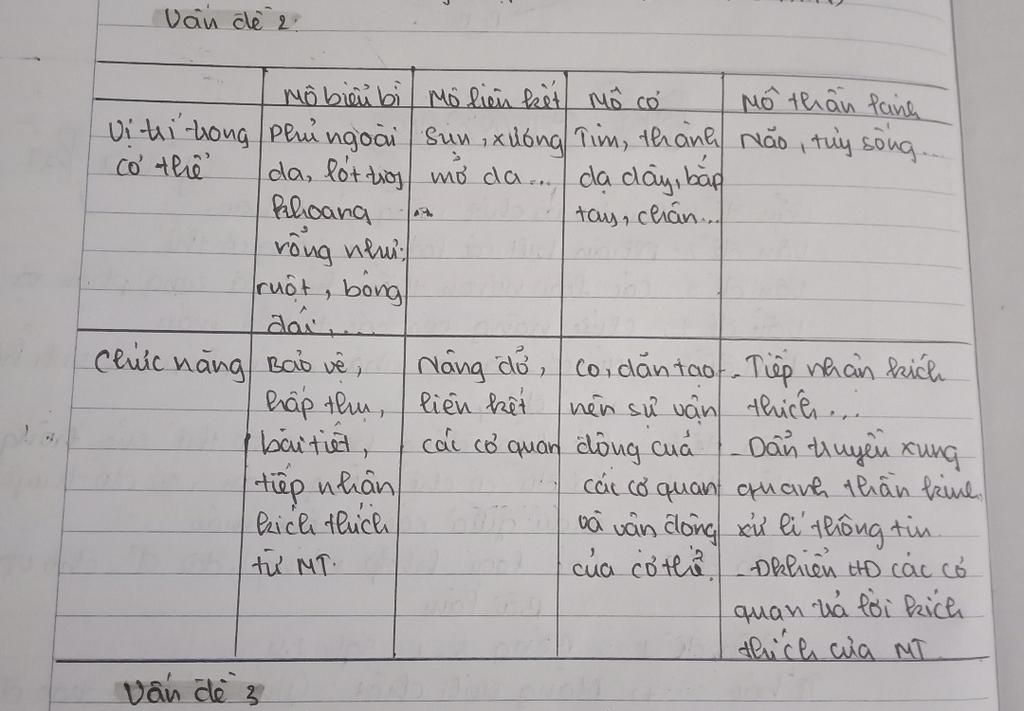 Vấn đề 2:
Mô biểu bì
Mô liên kết
Mô cơ
Mô thần kinh
Vị trí trong
cơ thể
Phủ ngoài
da, lót trog
khoang
rỗng như:
ruột, bóng
đái,...
Sụn, xương
mở da...
Tim, thành
dạ dày, bắp
tay, chân...
Não, tủy sống...
Chức năng
Bảo vệ,
hấp thụ,
bài tiết,
tiếp nhận
kích thích
từ MT.
Nâng đở,
liên kết
các cơ quan
Co, dãn tạo
nên sự vận
động của
các cơ quan
và vận động
của cơ thể.
- Tiếp nhận kích
thích...
- Dẩn truyền xung
quanh thần kinh,
xử lí thông tin
- Đkhiển HĐ các cơ
quan trả lời kích
thích của MT
Vấn đề 3